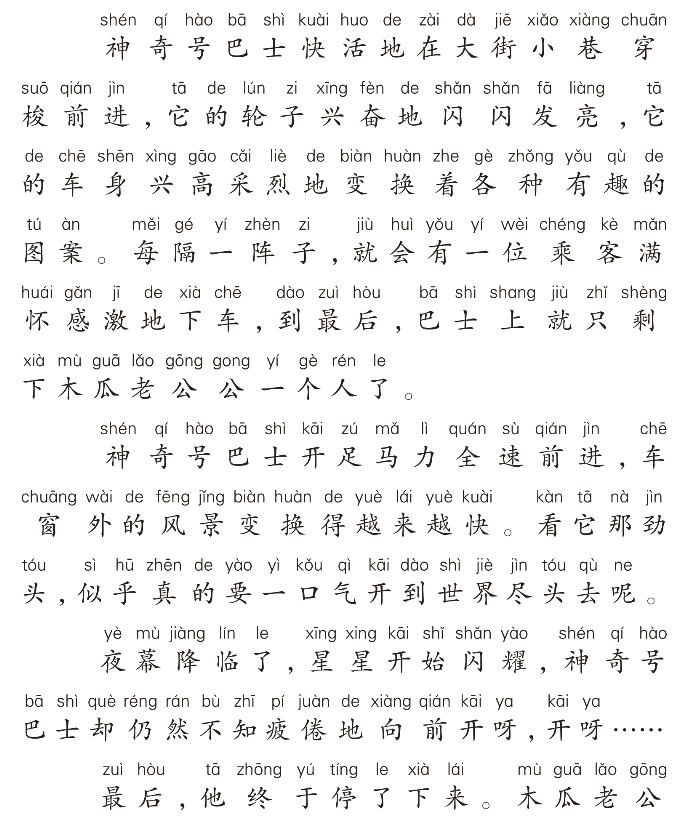 shén qí hào bā shì kuài huo de zài dà jiē xiǎo xiàng chuān
神奇号巴士快活地在大街小巷穿
suō qián jìn tā de lún zi xīng fèn de shǎn shǎn fā liàng tā
梭前进,它的轮子兴奋地闪闪发亮,它
de chē shēn xìng gāo cǎi liè de biàn huàn zhe gè zhǒng yǒu qù de
的车身兴高采烈地变换着各种有趣的
tú àn měi gé yí zhèn zi jiù huì yǒu yí wèi chéng kè mǎn
图案。每隔一阵子,就会有一位乘客满
huái gǎn jī de xià chē dào zuì hòu bā shì shang jiù zhǐ shèng
怀感激地下车,到最后,巴士上就只剩
xià mù guā lǎo gōng gong yí gè rén le
下木瓜老公公一个人了。
shén qí hào bā shì kāi zú mǎ lì quán sù qián jìn chē
神奇号巴士开足马力全速前进,车
chuāng wài de fēng jǐng biàn huàn de yuè lái yuè kuài kàn tā nà jìn
窗外的风景变换得越来越快。看它那劲
tóu sì hū zhēn de yào yì kǒu qì kāi dào shì jiè jìn tóu qù ne
头,似乎真的要一口气开到世界尽头去呢。
yè mù jiàng lín le xīng xing kāi shǐ shǎn yào shén qí hào
夜幕降临了,星星开始闪耀,神奇号
bā shì què réng rán bù zhī pí juàn de xiàng qián kāi ya kāi ya
巴士却仍然不知疲倦地向前开呀,开呀……
zuì hòu tā zhōng yú tíng le xià lái mù guā lǎo gōng
最后,他终于停了下来。木瓜老公